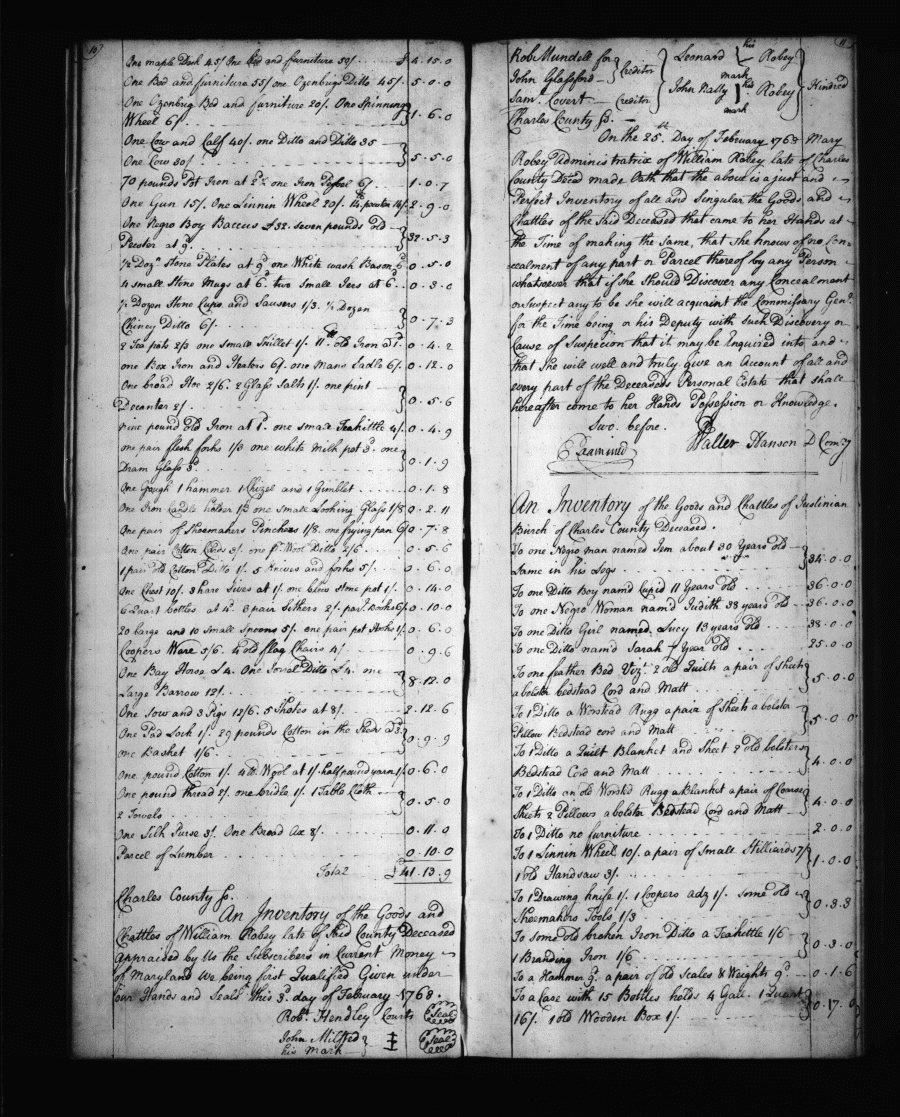 10
One maple Desk 45/ One bed and furniture 50/ £ 4.15.0
One Bed and furniture 55/ one Ozenbug Ditto 45/ 5.0.0
One Ozenbug Bed and furniture 20/. One Spinning
Wheel 6/ 1.6.0
One Cow and Calf 40/. one Ditto and Ditto 35
One Cow 30/ 5.5.0
70 pounds Pot Iron at 2d one Iron Pessel 6/ 1.0.7
One Gun 15/. One Linnin Wheel 20/. pewter 14/ 2.9.0
One Negro Boy Baccus £32. seven pounds old
Pewter at 9d 32.5.3
½ Dozn Stone Plates at 9d one White wash Bason 6d 0.5.0
4 small Stone Mugs at 6d two Small Jers at 6d 0.3.0
½ Dozen Stone Cups and Sausers 1/3. ½ Dozen
Chiney Ditto 6/ 0.7.3
2 Tea pots 2/3 one small Skillet 1/. 11lb old Iron at 1d 0.4.2
one Box Iron and Heaters 6/. one Mans Sadle 6/. 0.12.0
One broad Hoe 2/6. 2 Glass Salts 1/. one pint
Decanter 2/. 0.5.6
nine pound old Iron at 1d. one small Teakittle 4/. 0.4.9
one pair flesh forks 1/3 one white Milk pot 3d. one
Dram Glass 3d 0.1.9
One Gough 1 hammer 1 Chizel and 1 Gimblet 0.1.8
One Iron Candle holder 1/3 one small Looking Glass 1/8 0.2.11
One pair of Shoemakers Pinchers 1/8. one frying pan 6/ 0.7.8
One pair Cotton Cards 3/. one pr Wool Ditto 2/6 0.5.6
1 pair old Cotton Ditto 1/. 5 Knives and forks 5/. 0.6.0
One Chest 10/. 3 hare Sives at 1/. one blew stone pot 1/. 0.14.0
6 Quart bottles at 4d. 3 pair Sithers 2/. parl Books 6/ 0.10.0
20 large and 10 Small Spoons 5/. one pair pot Hooks 1/. 0.6.0
Coopers Ware 5/6. 4 old flag Chairs 4/ 0.9.6
One Bay Horse £4. One Sorrel Ditto £4. one
Large Barrow 12/. 8.12.0
One Sow and 3 Pigs 12/6. 5 Shotes at 8/. 2.12.6
One Pad Lock 1/. 29 pounds Cotton in the Seeds at 3d
one Basket 1/6 0.9.9
One pound Cotton 1/. 4 lb Wool at 1/. half pound yarn 1/. 0.6.0
One pound thread 2/. one bridle 1/. 1 Table Cloth
2 Towels 0.5.0
One Silk Purse 3/. One Broad Ax 8/. 0.11.0
Parcel of Lumber 0.10.0
Total £ 41.13.9
Charles County ss.
An Inventory of the Goods and
Chattles of William Robey late of Said County Deceased
appraised by Us the Subscribers in Current Money
of Maryland we being first Qualified Given under
our Hands and Seals this 3d. day of February 1768.
Robt. Hendley Courts Seal
John Milsted
his mark Seal
11
Robt Mundell for
John Glassford Creditor
Saml. Covert Creditor
Leonard his mark Robey
John Nally his mark Robey
Kindred
Charles County ss.
On the 25th. Day of February 1768 Mary
Robey Administratrix of William Robey late of Charles
County Decd made Oath that the above is a just and
Perfect Inventory of all and Singular the Goods and
Chattles of the said Deceased that came to her Hands at
the Time of making the Same, that She knows of no Con=
cealment of any part or Parcel thereof by any Person
whatsoever that if she Should Discover any Concealment
or Suspect any to be she will acquaint the Commissary Genl.
for the Time being or his Deputy with such Discovery or
Cause of Suspecion that it may be Enquired into, and
that She will well and truly give an Account of all and
every part of the Deceaseds Personal Estate that shall
hereafter come to her Hands Possession or Knowledge.
Swo. before.
Examined Walter Hanson D Comry
An Inventory of the Goods and Chattles of Justinian
Burch of Charles County Deceased.
To one Negro man named Jem about 30 Years old
Lame in his Legs 34.0.0
To one Ditto Boy named Cupid 11 Years old 36.0.0
To one Negro Woman namd Judith 38 years old 36.0.0
To one Ditto Girl named Lucy 13 years old 38.0.0
To one Ditto namd Sarah 7 Year old 25.0.0
To one feather Bed Vizt. 2 old Quilts a pair of Sheets
a bolster bedstead Cord and Matt 5.0.0
To 1 Ditto a Worstead Rugg a pair of Sheets a bolster
Pillow Bedstead cord and Matt 5.0.0
To 1 Ditto a Quilt Blanket and Sheet 2 old bolsters
Bedstead Cord and Matt 4.0.0
To 1 Ditto an old Worsted Rugg a Blanket a pair of Coarse
Sheets 2 Pillows a bolster Bedstead Cord and Matt 4.0.0
To 1 Ditto no furniture 2.0.0
To 1 Linnin Wheel 10/. a pair of Small Stilliards 7/
1 old Handsaw 3/. 1.0.0
To 1 Drawing knife 1/. 1 Coopers adz 1/. Some old
Shoemakers Tools 1/3 0.3.3
To some old broken Iron Ditto a Teakittle 1/6
1 Branding Iron 1/6 0.3.0
To a Hammer 9d. a pair of old Scales & Weights 9d 0.1.6
To a Case with 15 Bottles holds 4 Gall. 1 Quart
16/. 1 old Wooden Box 1/. 0.17.0